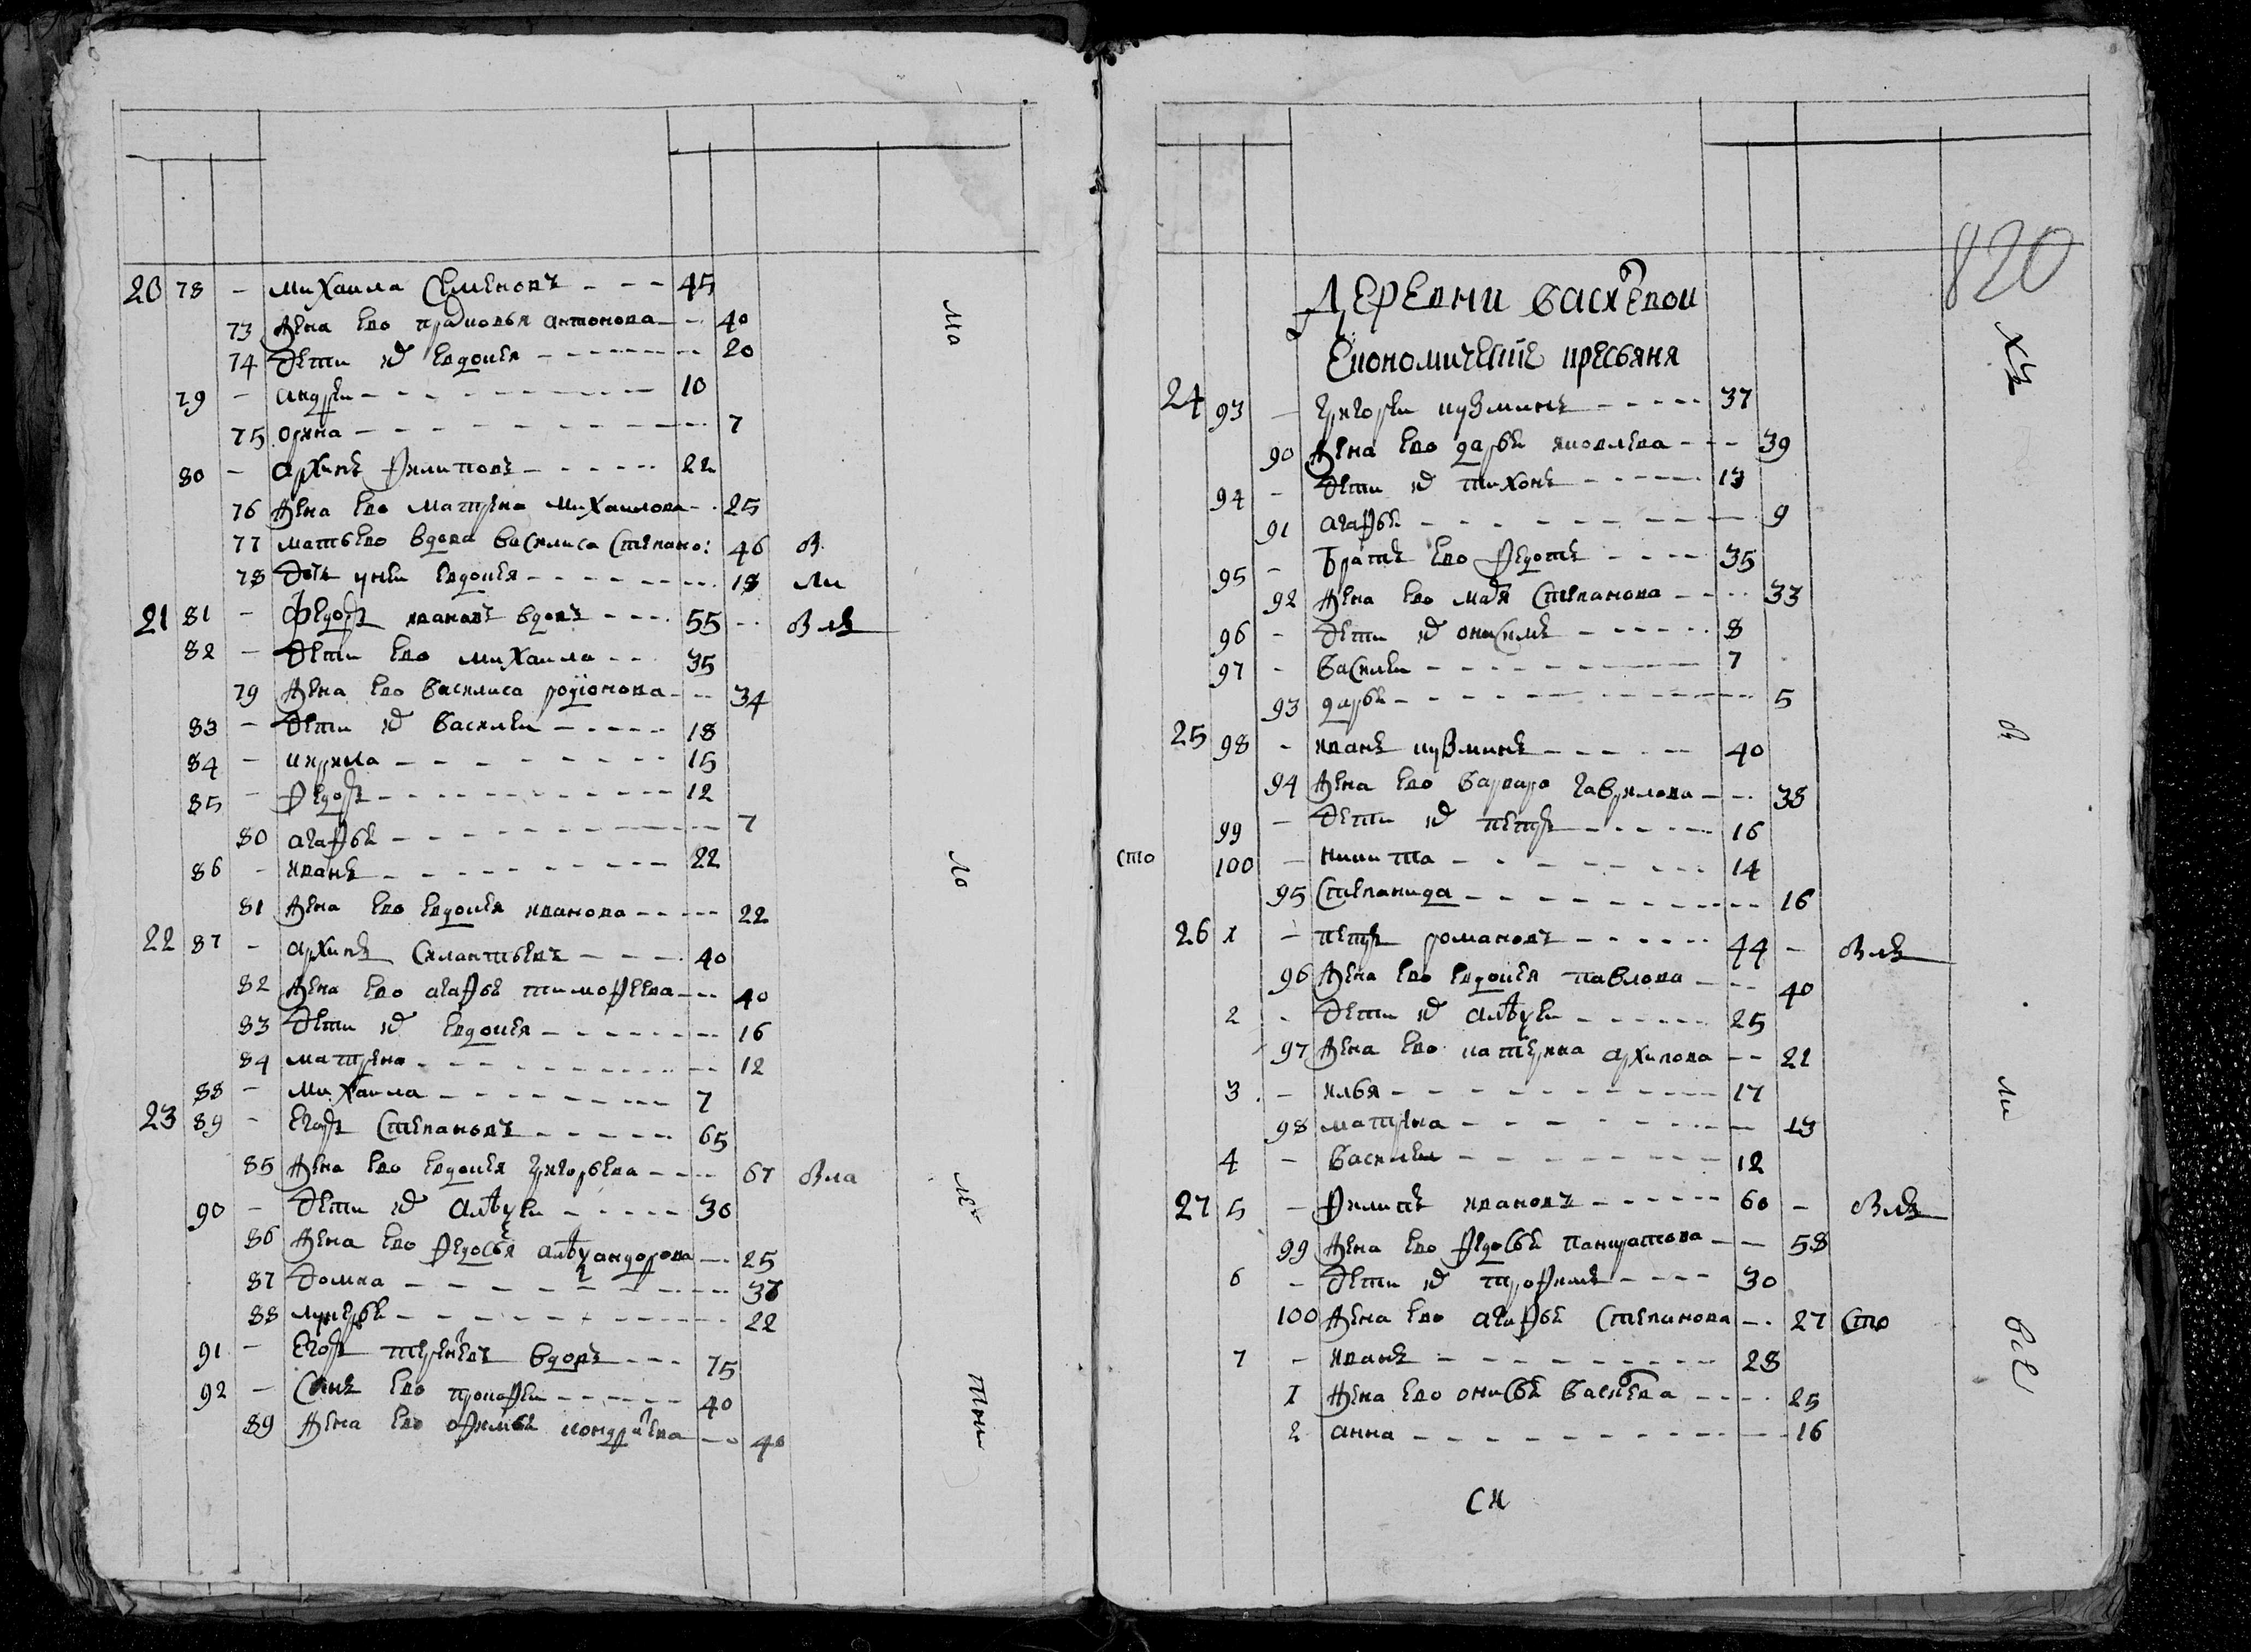 20 78 - михаила Семеновъ - - - 45
73 жена ево прасковья антонова - - 40
74 дети их евдокея - - - 20
79 - андреи - - - 10
75 орина - - - 7
80 - архипъ филиповъ - - - 22
76 жена ево матрена михаилова - - 25
77 мать ево вдова василиса степано: 46 в
78 дочь у неи евдокея - - - 18 ли
21 81 - федоръ ивановъ вдовъ - - - 55 - -
82 - дети ево михаила - - - 35
79 жена ево василиса родіонова - - - 34
83 - дети их василеи - - - 18
84 - кирила - - - 15
85 - федоръ - - - 12
80 агафья - - - 7
86 - иванъ - - - 22
81 жена ево евдокея иванова - - - 22
22 87 - архипъ силантьевъ - - - 40
82 жена ево агафья тимофеева - - - 40
83 дети их евдокея - - - 16
84 матрена - - - 12
88 - михаила - - - 7
23 89 - егоръ степановъ - - - 65
85 жена ево евдокея григорьева - - - 67 вла
90 - дети их алексеи - - - 30
86 жена ево федосья александрова - - 25
87 домна - - - 37
88 лукерья - - - 22
91 - егоръ вдовъ - - - 75
92 - сынъ ево прокофеи - - - 40
89 жена ево офимья кондратева - - 40
ма
ло
лет
пни
820
деревни васкевои
економические кресьяня
24 93 - григореи кузминъ - - - 37
90 жена ево дарья яковлева - - - 39
94 - дети их тихонъ - - - 13
91 агафья - - - 9
95 - братъ ево федотъ - - - 35
92 жена ево марья степанова - - - 33
96 - дети их онисимъ - - - 8
97 - василеи - - - 7
93 дарья - - - 5
25 98 - иванъ кузминъ - - - 40
94 жена ево варвара гаврилова - - - 38
99 - дети их петръ - - - 16
сто 100 - никита - - - 14
95 степанида - - - 16
26 1 - петръ романовъ - - - 44 -
96 жена ево евдокея павлова - - - 40
2 - дети их алексеи - - - 25
97 жена ево катерина архипова - - 21
3 - илья - - - 17
98 матрена - - - 13
4 - василеи - - - 12
27 5 - филипъ ивановъ - - - 60 -
99 жена ево федосья панкратова - - 58
6 - дети их трофимъ - - - 30
100 жена ево агафья степанова - - 27 сто
7 - иванъ - - - 28
1 жена ево онисья васильева - - - 25
2 анна - - - 16
си
ли